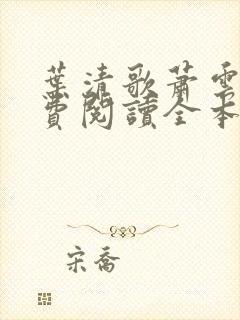 葉清歌蕭雲
費閱讀全本
宋喬